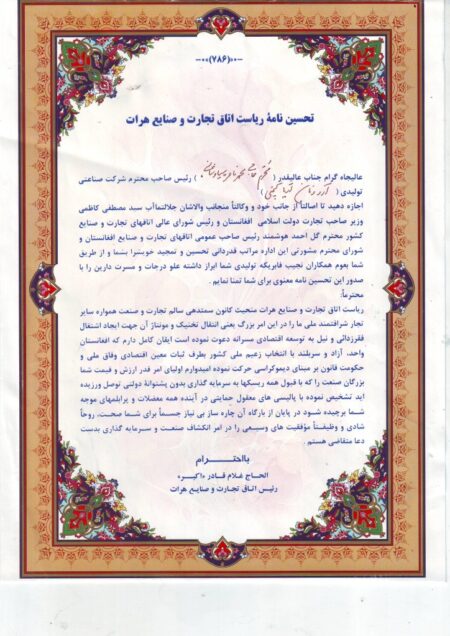 -««(۷۸۶)»»-
تحسین نامهٔ ریاست اتاق تجارت و صنایع هرات
عالیجاه گرام جناب عالیقدر ( محترم ) رئیس صاحب محترم شرکت صنعتی
تولیدی ( )
اجازه دهید تا اصالتاً از جانب خود و وکالتاً منجانب والاشان جلالتمآب سید مصطفی کاظمی
وزیر صاحب تجارت دولت اسلامی افغانستان و رئیس شورای عالی اتاقهای تجارت و صنایع
کشور محترم گل احمد هوشمند رئیس صاحب عمومی اتاقهای تجارت و صنایع افغانستان و
شورای محترم مشورتی این اداره مراتب قدردانی تحسین و تمجید خویشرا بشما و از طریق
شما بعوم همکاران نجیب فابریکه تولیدی شما ابراز داشته علو درجات و مسرت دارین را با
صدور این تحسین نامه معنوی برای شما تمنا نمایم .
محترما:
ریاست اتاق تجارت و صنایع هرات منحیث کانون سمتدهی سالم تجارت و صنعت همواره سایر
تجار شرافتمند ملی ما را در این امر بزرگ یعنی انتقال تخنیک و مونتاژ آن جهت ایجاد اشتغال
فقرزدائی و نیل به توسعه اقتصادی مسرانه دعوت نموده است ایقان کامل دارم که افغانستان
واحد، آزاد و سربلند با انتخاب زعیم ملی کشور بطرف ثبات معین اقتصادی وفاق ملی و
حکومت قانون بر مبنای دیموکراسی حرکت نموده امیدوارم اولیای امر قدر ارزش و قیمت شما
بزرگان صنعت را که با قبول همه ریسکها به سرمایه گذاری بدون پشتوانهٔ دولتی توصل ورزیده
اید تشخیص نموده با پالیسی های معقول حمایتی در آینده همه معضلات و پرابلمهای موجه
شما برچیده شود در پایان از بارگاه آن چاره ساز بی نیاز جسماً برای شما صحت، روحاً
شادی و وظیفتاً مؤفقیت های وسیعی را در امر انکشاف صنعت و سرمایه گذاری بدست
دعا متقاضی هستم .
بااحترام
الحاج غلام قادر «اکبر»
رئیس اتاق تجارت و صنایع هرات